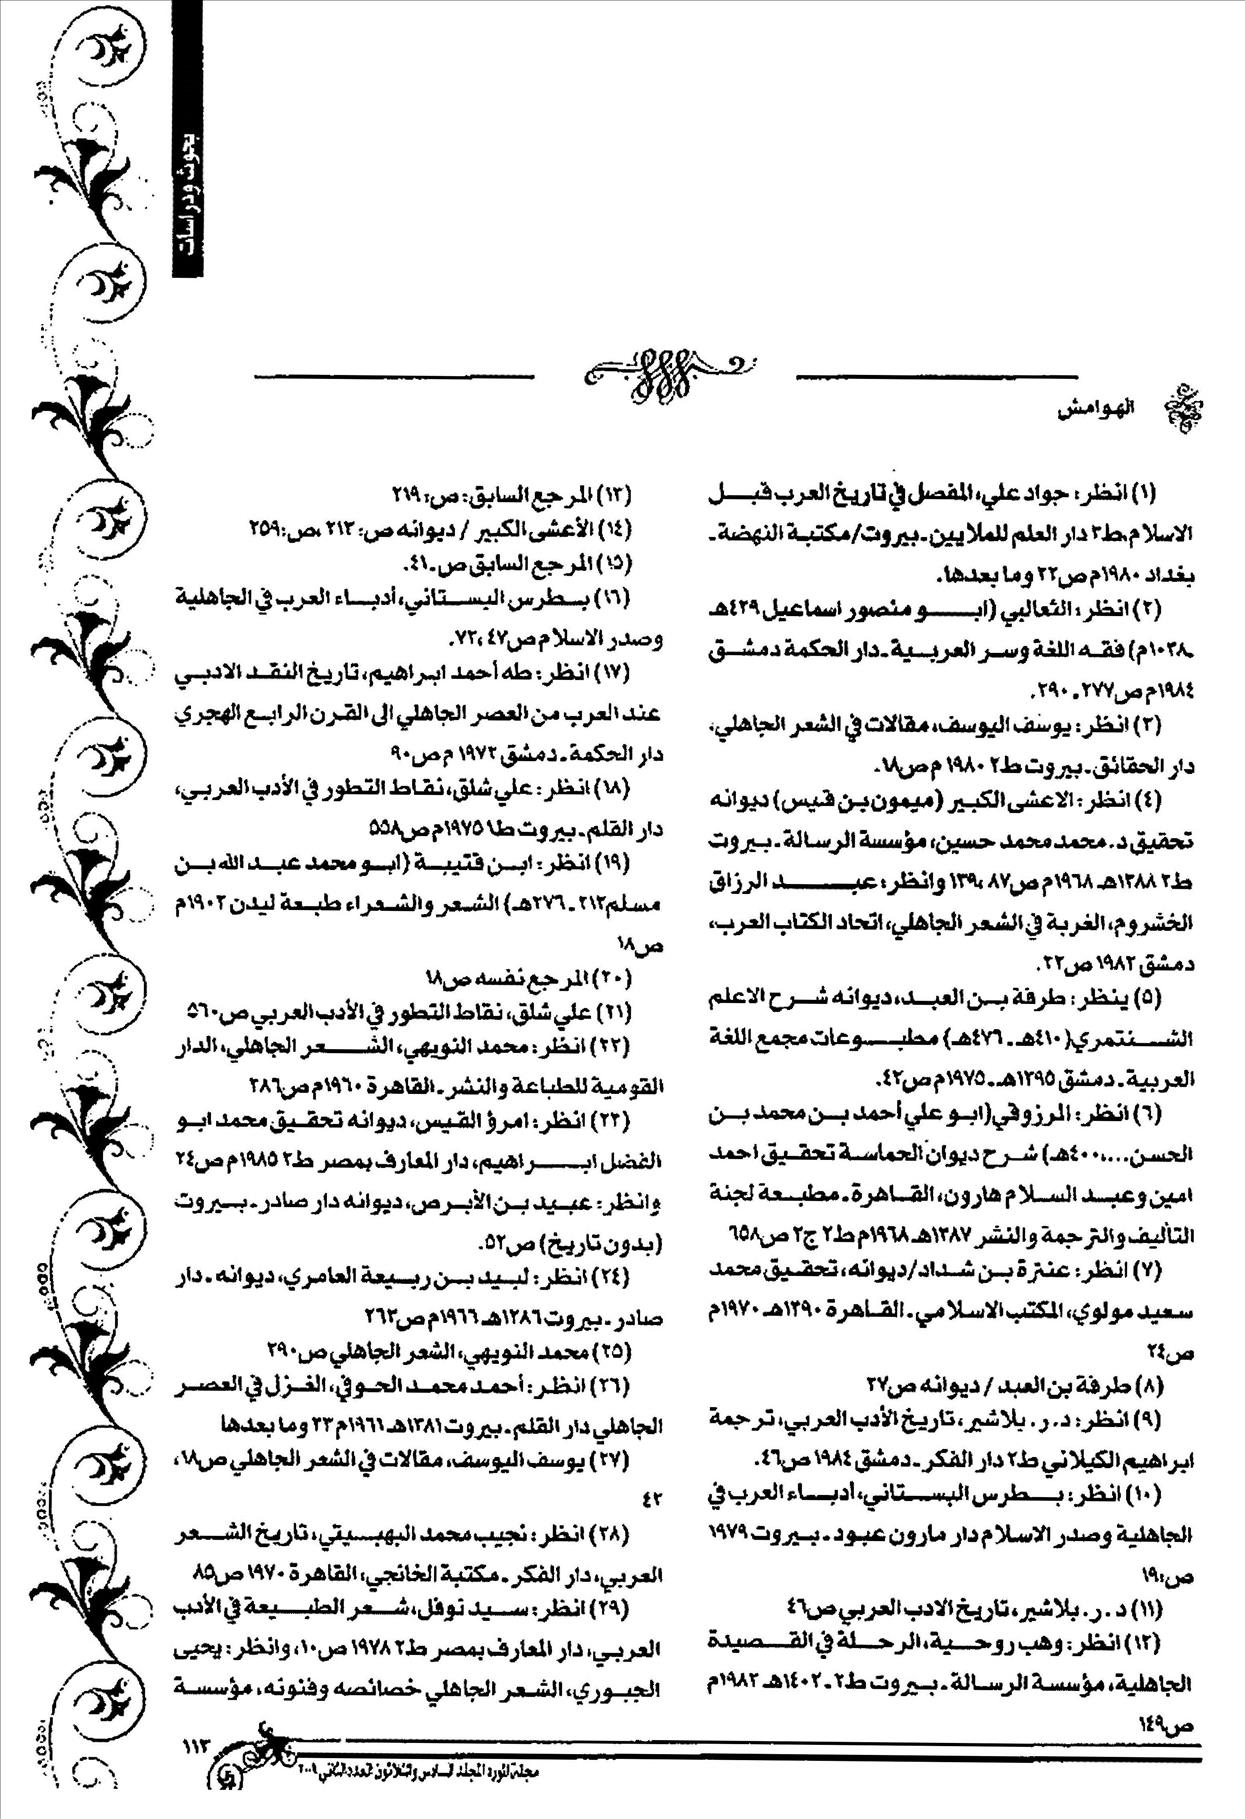 بحوث ودراسات
الهوامش
(١) انظر: جواد علي، المفصل في تاريخ العرب قبل
الاسلام، ط٣ دار العلم للملايين ـ بيروت/مكتبة النهضة ـ
بغداد ١٩٨٠م ص٢٢ وما بعدها.
(٢) انظر: الثعالبي (ابو منصور اسماعيل ٤٢٩هـ
ـ١٠٣٨م) فقه اللغة وسر العربية ـ دار الحكمة دمشق
١٩٨٤م ص٢٧٧ ـ ٢٩٠.
(٣) انظر: يوسف اليوسف، مقالات في الشعر الجاهلي،
دار الحقائق ـ بيروت ط٢ ١٩٨٠م ص١٨.
(٤) انظر: الاعشى الكبير (ميمون بن قيس) ديوانه
تحقيق د. محمد محمد حسين، مؤسسة الرسالة ـ بيروت
ط٢ ١٣٨٨هـ ١٩٦٨م ص٨٧، ١٣٩ وانظر: عبد الرزاق
الخشروم، الغربة في الشعر الجاهلي، اتحاد الكتاب العرب،
دمشق ١٩٨٢ ص٢٢.
(٥) ينظر: طرفة بن العبد، ديوانه شرح الاعلم
الشنتمري(٤١٠هـ ـ ٤٧٦هـ) مطبوعات مجمع اللغة
العربية ـ دمشق ١٣٩٥هـ ـ ١٩٧٥م ص٤٢.
(٦) انظر: المرزوقي(ابو علي أحمد بن محمد بن
الحسن....،٤٠٠هـ) شرح ديوان الحماسة تحقيق احمد
امين وعبد السلام هارون، القاهرة ـ مطبعة لجنة
التأليف والترجمة والنشر ١٣٨٧هـ ١٩٦٨م ط٢ ج٢ ص٦٥٨
(٧) انظر: عنترة بن شداد/ديوانه، تحقيق محمد
سعيد مولوي، المكتب الاسلامي ـ القاهرة ١٣٩٠هـ ١٩٧٠م
ص٢٤
(٨) طرفة بن العبد / ديوانه ص٢٧
(٩) انظر: د.ر. بلاشير، تاريخ الأدب العربي، ترجمة
ابراهيم الكيلاني ط٢ دار الفكر ـ دمشق ١٩٨٤ ص٤٦.
(١٠) انظر: بطرس البستاني، أدباء العرب في
الجاهلية وصدر الاسلام دار مارون عبود ـ بيروت ١٩٧٩
ص:١٩
(١١) د.ر. بلاشير، تاريخ الادب العربي ص٤٦
(١٢) انظر: وهب روحية، الرحلة في القصيدة
الجاهلية، مؤسسة الرسالة ـ بيروت ط٢ ـ ١٤٠٢هـ ١٩٨٢م
ص١٤٩
(١٣) المرجع السابق: ص: ٢١٩
(١٤) الأعشى الكبير / ديوانه ص: ٢١٣، ص: ٢٥٩
(١٥) المرجع السابق ص٤١٠.
(١٦) بطرس البستاني، أدباء العرب في الجاهلية
وصدر الاسلام ص٤٧، ٧٢.
(١٧) انظر: طه أحمد ابراهيم، تاريخ النقد الادبي
عند العرب من العصر الجاهلي الى القرن الرابع الهجري
دار الحكمة ـ دمشق ١٩٧٢م ص٩٠
(١٨) انظر: علي شلق، نقاط التطور في الأدب العربي،
دار القلم ـ بيروت ط١ ١٩٧٥م ص٥٥٨
(١٩) انظر: ابن قتيبة (ابو محمد عبد الله بن
مسلم٢١٢ ـ ٢٧٦هـ) الشعر والشعراء طبعة ليدن ١٩٠٢م
ص١٨
(٢٠) المرجع نفسه ص١٨
(٢١) علي شلق، نقاط التطور في الأدب العربي ص٥٦٠
(٢٢) انظر: محمد النويهي، الشعر الجاهلي، الدار
القومية للطباعة والنشر ـ القاهرة ١٩٦٠م ص٢٨٦
(٢٣) انظر: امرؤ القيس، ديوانه تحقيق محمد ابو
الفضل ابراهيم، دار المعارف بمصر ط٢ ١٩٨٥م ص٢٤
وانظر: عبيد بن الأبرص، ديوانه دار صادر ـ بيروت
(بدون تاريخ) ص٥٢.
(٢٤) انظر: لبيد بن ربيعة العامري، ديوانه ـ دار
صادر ـ بيروت ١٣٨٦هـ ١٩٦٦م ص٢٦٣
(٢٥) محمد النويهي، الشعر الجاهلي ص٢٩٠
(٢٦) انظر: أحمد محمد الحوفي، الغزل في العصر
الجاهلي دار القلم ـ بيروت ١٣٨١هـ ١٩٦١م ٢٣ وما بعدها
(٢٧) يوسف اليوسف، مقالات في الشعر الجاهلي ص١٨،
٤٢
(٢٨) انظر: نجيب محمد البهبيتي، تاريخ الشعر
العربي، دار الفكر ـ مكتبة الخانجي، القاهرة ١٩٧٠ ص٨٥
(٢٩) انظر: سيد نوفل، شعر الطبيعة في الأدب
العربي، دار المعارف بمصر ط٢ ١٩٧٨ ص١٠، وانظر: يحيى
الجبوري، الشعر الجاهلي خصائصه وفنونه، مؤسسة
١١٣
مجلة المورد المجلد السادس والثلاثون العدد الثاني ٢٠٠٩